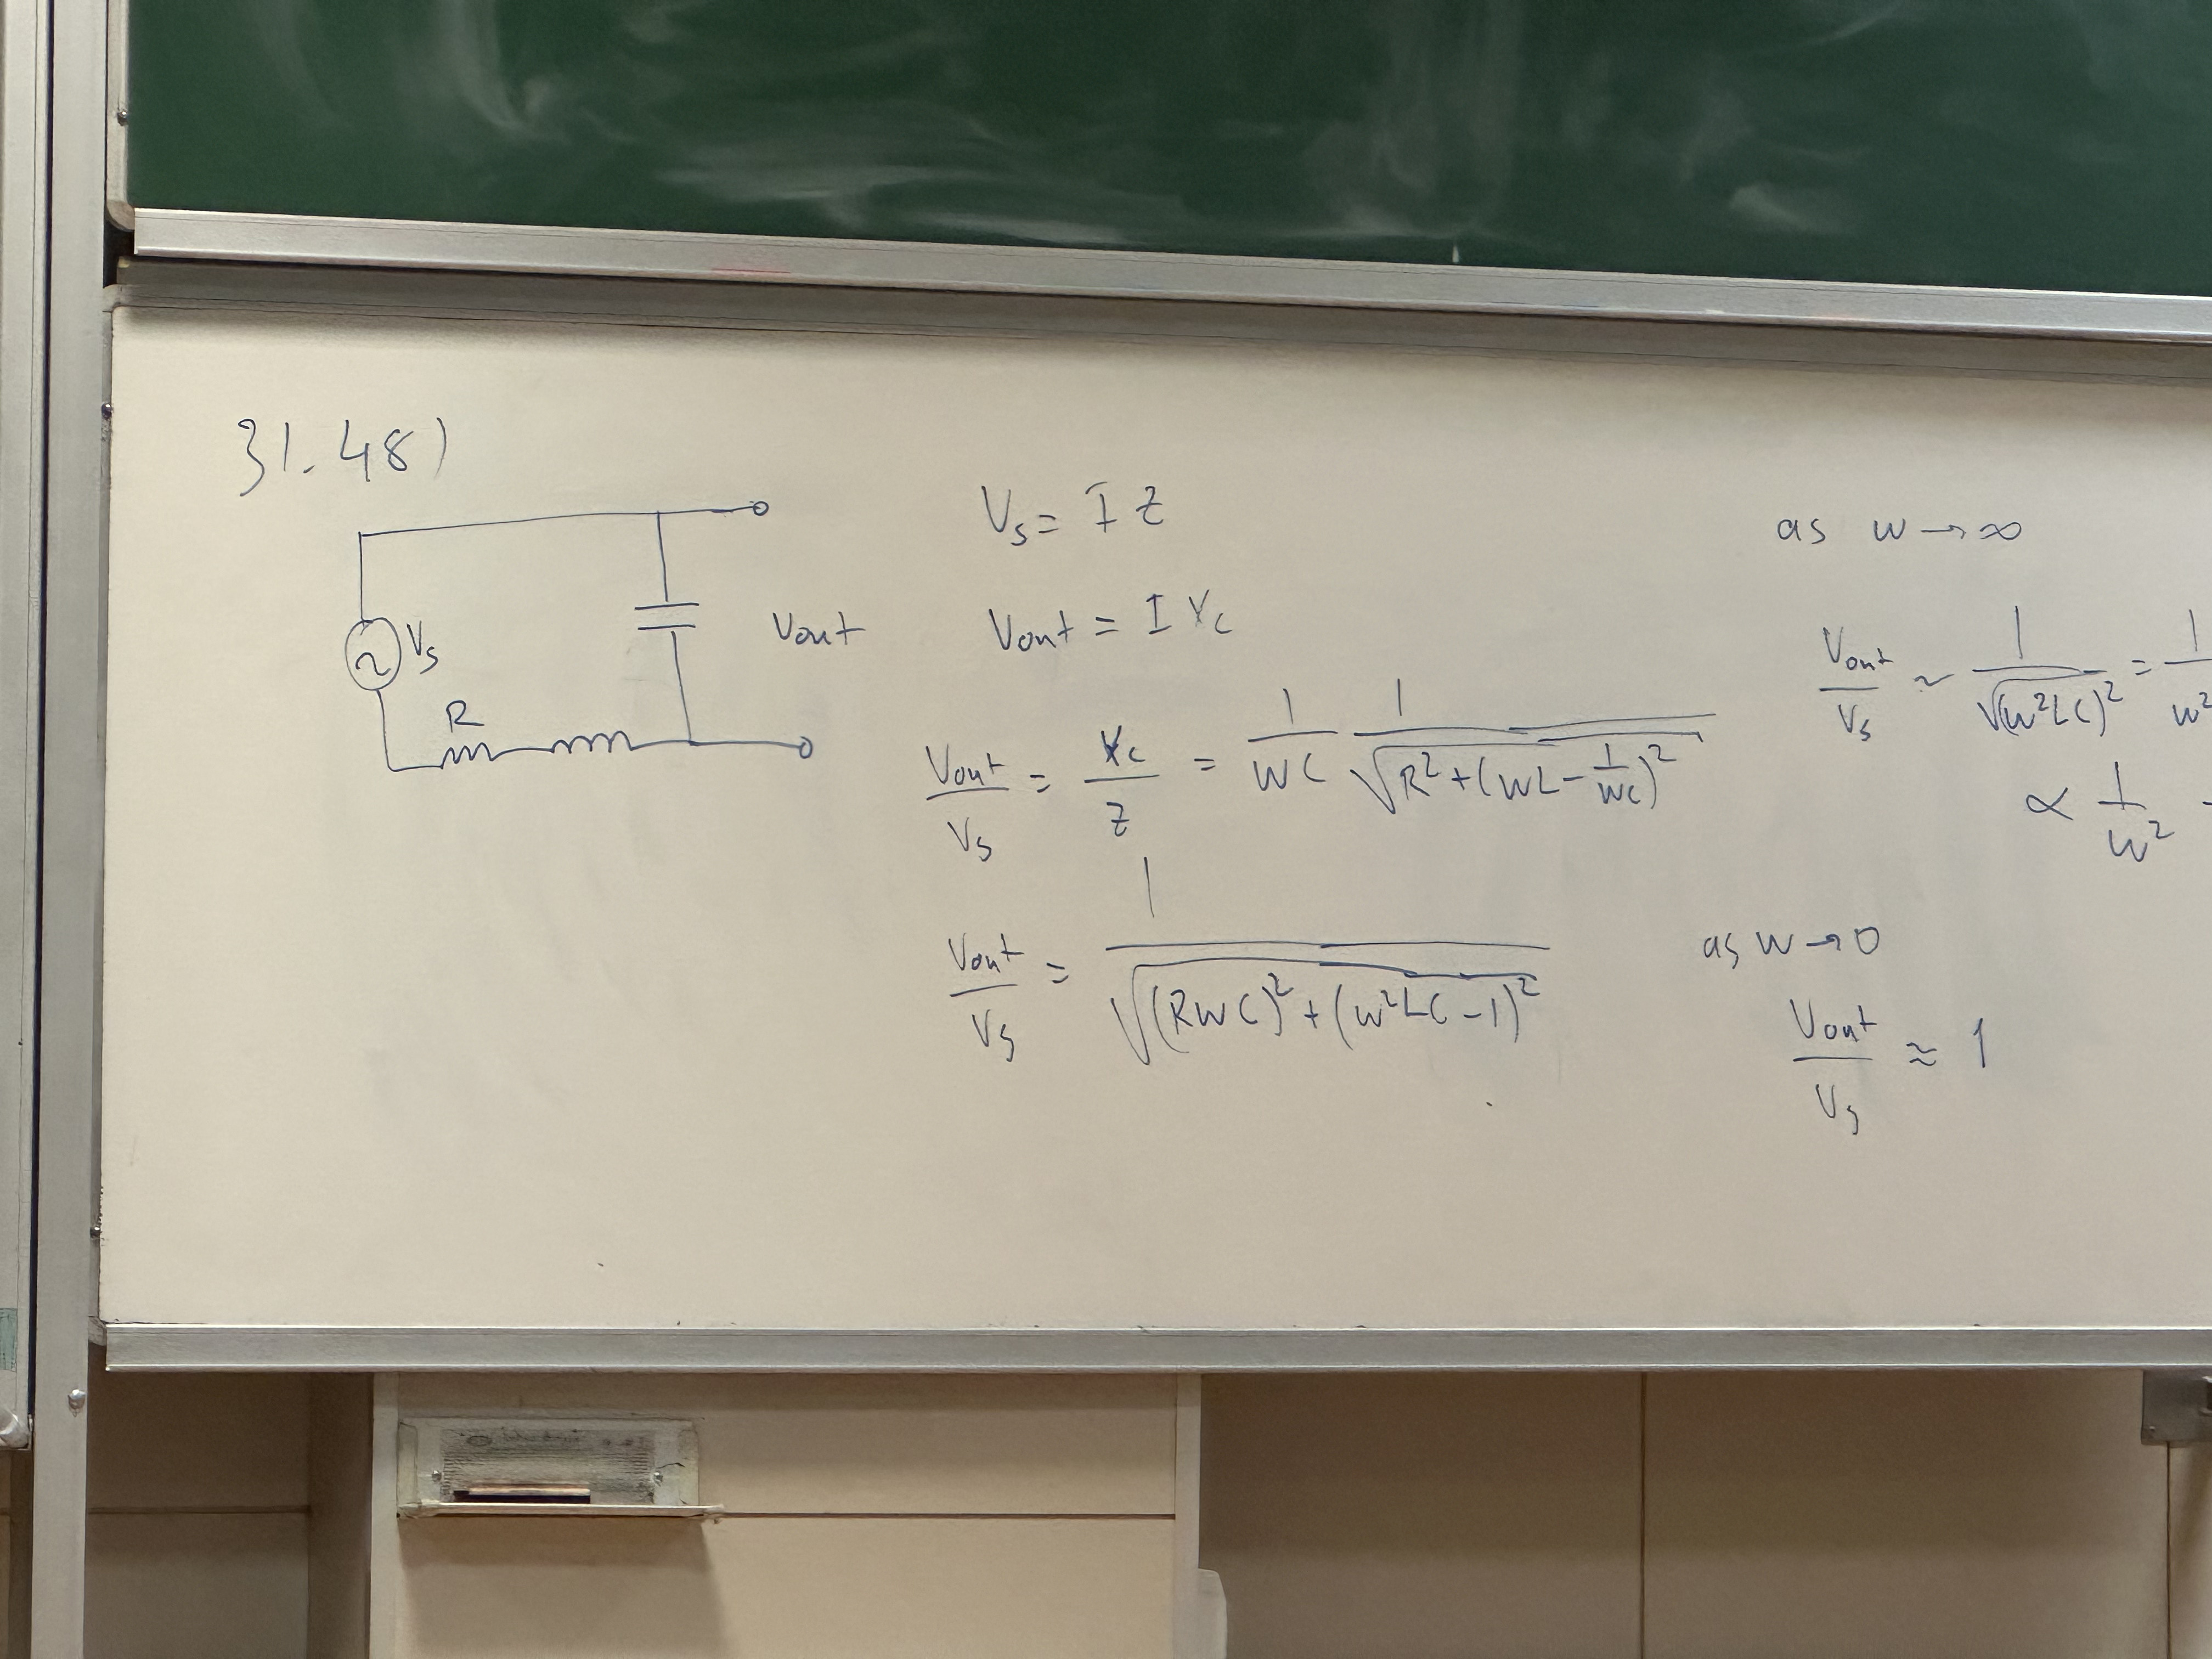 31.48)
Vs
R
Vout
Vs = I Z
Vout = I Xc
Vout/Vs = Xc/Z = 1/WC 1/√(R² + (WL - 1/WC)²)
Vout/Vs = 1/√((RWC)² + (W²LC - 1)²)
as W → ∞
Vout/Vs ~ 1/√(W²LC)² = 1/W²
∝ 1/W²
as W → 0
Vout/Vs ≈ 1